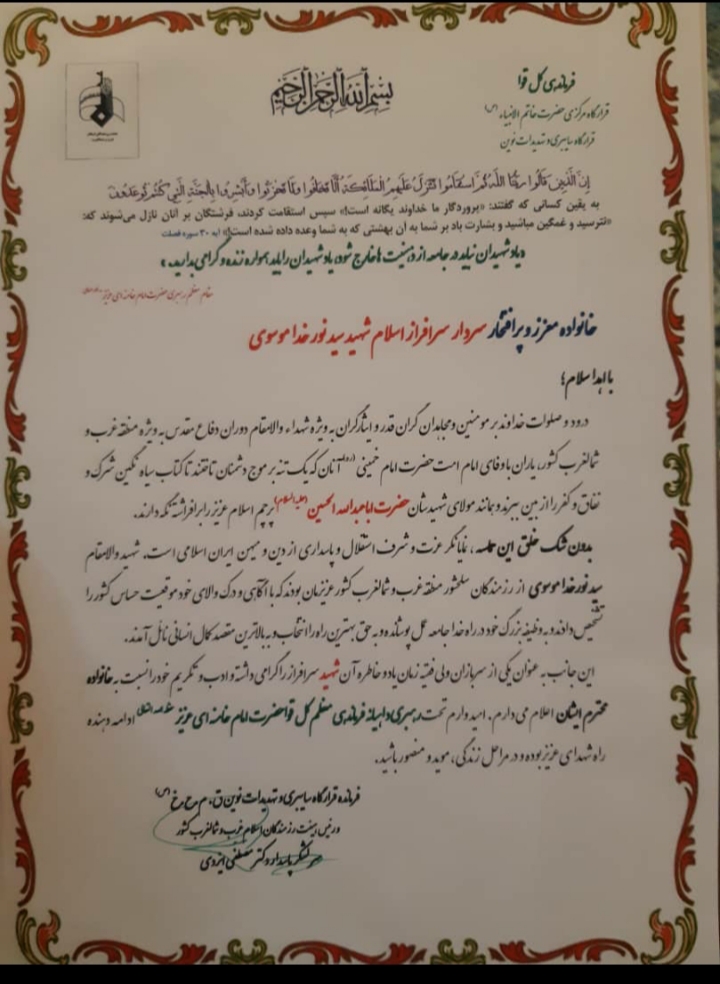 بسم الله الرحمن الرحیم
فرماندهی کل قوا
قرارگاه مرکزی حضرت خاتم الانبیاء (ص)
قرارگاه سایبری و تهدیدات نوین
إنَّ الَّذِینَ قَالُوا رَبُّنَا اللَّهُ ثُمَّ اسْتَقَامُوا تَتَنَزَّلُ عَلَیْهِمُ الْمَلَائِکَةُ أَلَّا تَخَافُوا وَلَا تَحْزَنُوا وَأَبْشِرُوا بِالْجَنَّةِ الَّتِی کُنْتُمْ تُوعَدُونَ
به یقین کسانی که گفتند: «پروردگار ما خداوند یگانه است!» سپس استقامت کردند، فرشتگان بر آنان نازل می‌شوند که:
«نترسید و غمگین مباشید و بشارت باد بر شما به آن بهشتی که به شما وعده داده شده است!» آیه ۳۰ سوره فصلت
«یاد شهیدان نباید در جامعه از ذهنیت ها خارج شود؛ یاد شهیدان را باید همواره زنده و گرامی بدارید.»
مقام معظم رهبری حضرت امام خامنه ای عزیز
خانواده معزز و پر افتخار سردار سرافراز اسلام شهید سید نورخدا موسوی
با اهدا سلام؛
درود و صلوات خداوند بر مومنین و مجاهدان گران قدر و ایثارگران به ویژه شهداء والامقام دوران دفاع مقدس به ویژه منطقه غرب و
شمالغرب کشور، یاران باوفای امام امت حضرت امام خمینی (ره) آنان که یک تنه بر موج دشمنان تاختند تا کتاب سیاه ننگین شرک و
نفاق و کفر را از بین ببرند و بمانند مولای شهیدشان حضرت اباعبدالله الحسین (علیه السلام) پرچم اسلام عزیز را برافراشته نگه دارند.
بدون شک خلق این حماسه، نمایانگر عزت و شرف استقلال و پاسداری از دین و میهن ایران اسلامی است. شهید والامقام
سید نورخدا موسوی از رزمندگان سلحشور منطقه غرب و شمالغرب کشور عزیزمان بودند که با آگاهی و درک والای خود موقعیت حساس کشور را
تشخیص داده و به وظیفه بزرگ خود در راه خدا جامه عمل پوشانده و به حق بهترین راه را انتخاب و به بالاترین مقصد کمال انسانی نائل آمدند.
این جانب به عنوان یکی از سربازان ولی فقیه زمان یاد و خاطره آن شهید سرافراز را گرامی داشته و ادب و تکریم خود را نسبت به خانواده
محترم ایشان اعلام می دارم. امید دارم تحت رهبری داهیانه فرماندهی معظم کل قوا حضرت امام خامنه ای عزیز ادامه دهنده
راه شهدای عزیز بوده و در مراحل زندگی، موید و منصور باشید.
فرمانده قرارگاه سایبری و تهدیدات نوین ق. م ح خ (ص)
و رئیس هیئت رزمندگان اسلام غرب و شمالغرب کشور
سرلشگر پاسدار دکتر مصطفی ایزدی